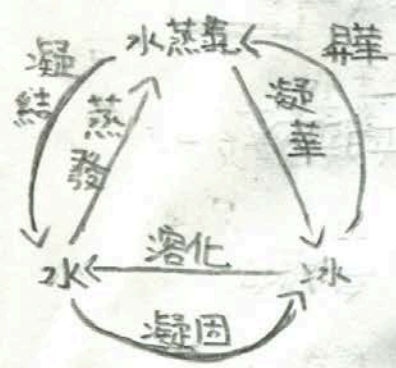 水蒸氣
昇華
凝結
蒸發
凝華
溶化
水
冰
凝因